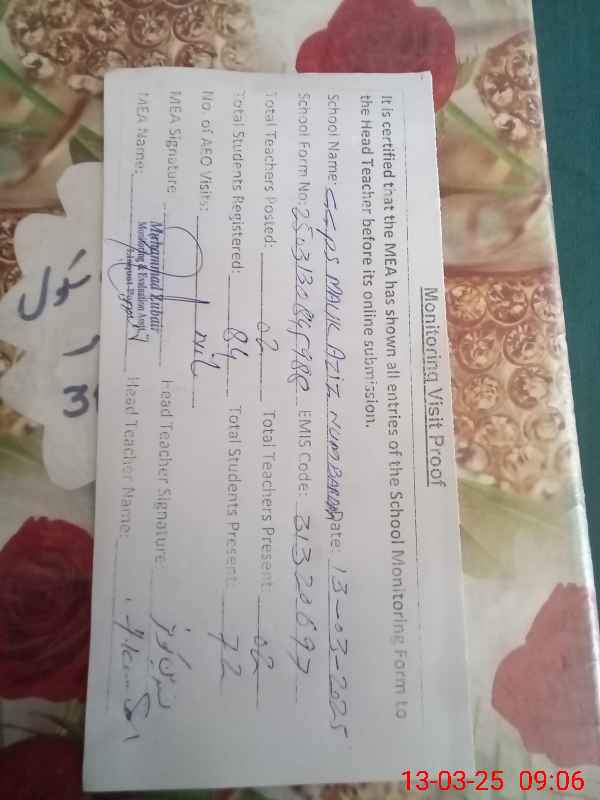 Monitoring Visit Proof
It is certified that the MEA has shown all entries of the School Monitoring Form to
the Head Teacher before its online submission.
School Name: GGPS MALIK AZIZ NUMBARDAR Date: 13-03-2025
School Form No: EMIS Code: 31320697
Total Teachers Posted: 02 Total Teachers Present: 02
Total Students Registered: 84 Total Students Present: 72
No. of AEO Visits: nil
MEA Signature: Head Teacher Signature:
Muhammad Zubair
Monitoring & Evaluation Asstt
MEA Name: Head Teacher Name:
13-03-25 09:06